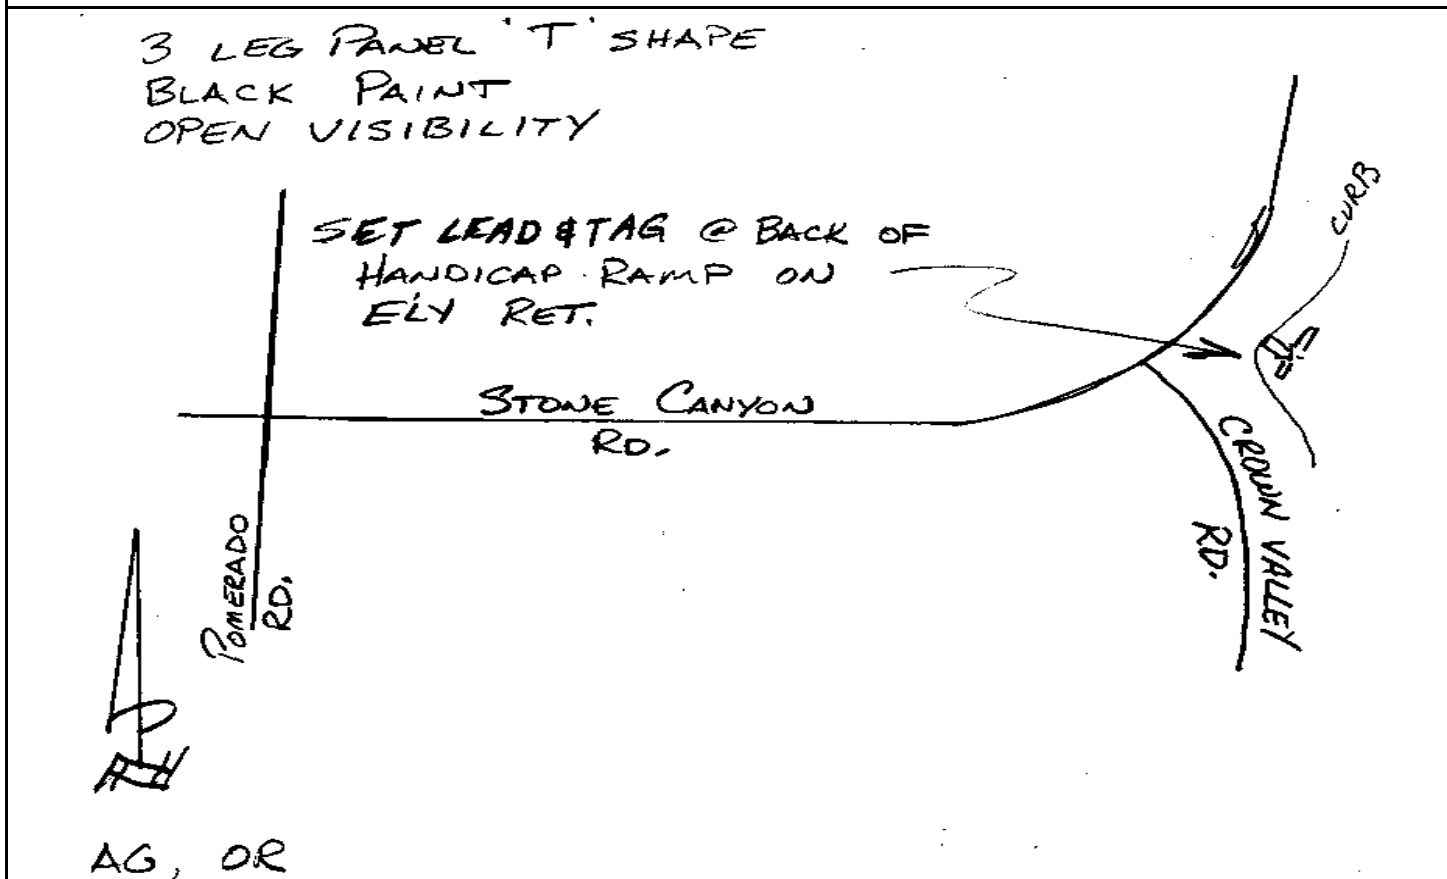 3 LEG PANEL 'T' SHAPE
BLACK PAINT
OPEN VISIBILITY
SET LEAD & TAG @ BACK OF
HANDICAP RAMP ON
E'LY RET.
CURB
STONE CANYON
RD.
CROWN VALLEY
RD.
POMERADO
RD.
AG, OR